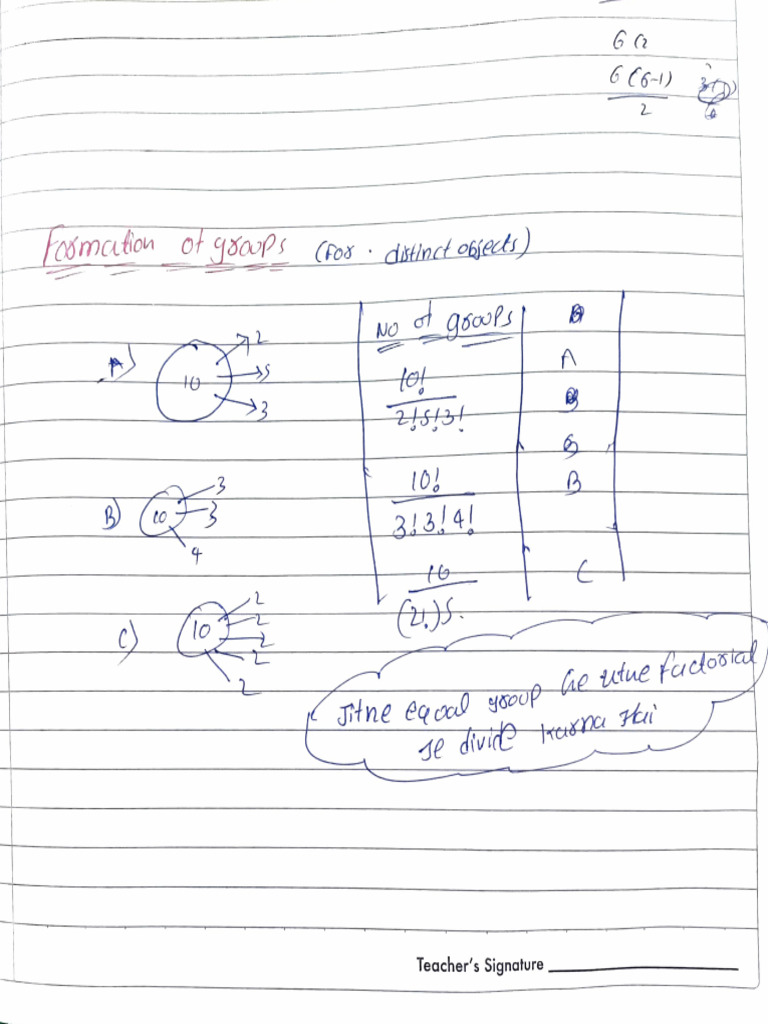 6C2
6(6-1)
2
Formation of groups (For . distinct objects)
No of groups
A) 10 2 5 3
10!
2!5!3!
A
B) 10 3 3 4
10!
3!3!4!
B
C) 10 2 2 2 2 2
10
(2!)5.
C
Jitne equal group
factorial
se divide karna Hai
Teacher's Signature